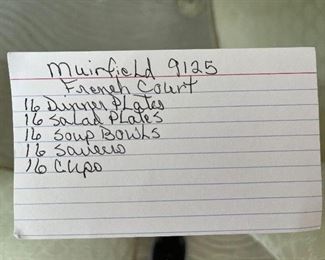 Muirfield 9125
French Court
16 Dinner Plates
16 Salad Plates
16 Soup Bowls
16 Saucers
16 Cups